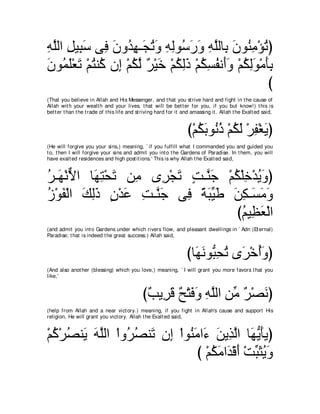 ﴿تُؤْمِنُونَ بِاللَّهِ وَرَسُولِهِ وَتُجَـهِدُونَ فِى سَبِيلِ اللَّهِ
بِأَمْوَلِكُمْ وَأَنفُسِكُمْ ذَلِكُمْ خَيْرٌ لَّكُمْ إِن كُنتُمْ تَعْلَمُونَ
﴾
(That you believe in Allah and His Messenger, and that you strive hard and fight in the cause of Allah with your wealth and your lives, that will be better for you, if you but know!) this is better than the trade of this life and striving hard for it and amassing it. Allah the Exalted said,
﴿يَغْفِرْ لَكُمْ ذُنُوبَكُمْ﴾
(He will forgive you your sins,) meaning, `if you fulfill what I commanded you and guided you to, then I will forgive your sins and admit you into the Gardens of Paradise. In them, you will have exalted residences and high positions.' This is why Allah the Exalted said,
﴿وَيُدْخِلْكُمْ جَنَّـتٍ تَجْرِى مِن تَحْتِهَا الاٌّنْهَـرُ
وَمَسَـكِنَ طَيِّبَةً فِى جَنَّـتِ عَدْنٍ ذَلِكَ الْفَوْزُ
الْعَظِيمُ﴾
(and admit you into Gardens under which rivers flow, and pleasant dwellings in `Adn (Eternal) Paradise; that is indeed the great success.) Allah said,
﴿وَأُخْرَى تُحِبُّونَهَا﴾
(And also another (blessing) which you love,) meaning, `I will grant you more favors that you like,'
﴿نَصْرٌ مِّن اللَّهِ وَفَتْحٌ قَرِيبٌ﴾
(help from Allah and a near victory.) meaning, if you fight in Allah's cause and support His religion, He will grant you victory. Allah the Exalted said,
﴿يأَيُّهَا الَّذِينَ ءَامَنُواْ إِن تَنصُرُواْ اللَّهَ يَنصُرْكُمْ
وَيُثَبِّتْ أَقْدَامَكُمْ ﴾